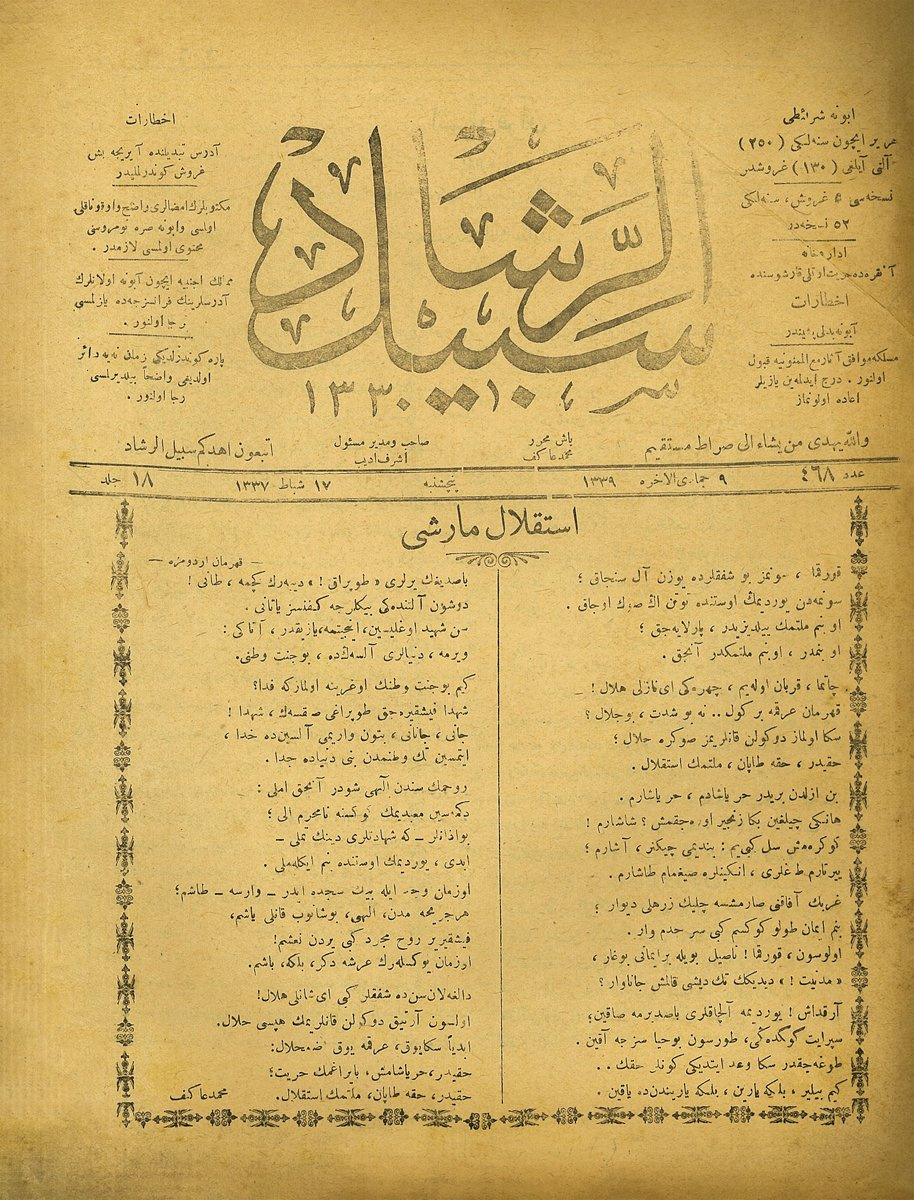 ابونه شرائطی
هر یر ایچون سنه‌لکی (٢٥٠)
آلتی آیلغی (١٣٠) غروشدر
نسخه‌سی ٥ غروش، سنه‌لکی
٥٢ نسخه‌در
اداره‌خانه
آنقره‌ده حریت اوتلی قارشوسنده
اخطارات
آبونه بدلی پشیندر
مسلکه موافق آثار مع الممنونیه قبول
اولنور . درج ایدلمه‌ین یازیلر
اعاده اولونماز
سبیل الرشاد
١٣٣٠
اخطارات
آدرس تبدیلنده آیریجه بش
غروش کوندرلملیدر
مکتوبلرك امضالری واضح و اوقوناقلی
اولسی و ابونه صره نومروسی
محتوی اولمسی لازمدر .
ممالك اجنبیه ایچون آبونه اولانلرك
آدرسلرینك فرانسزجه‌ده یازلمسی
رجا اولنور .
پاره کوندرلدیکی زمان نه‌یه دائر
اولدیغی واضحاً بیلدیرلمسی
رجا اولنور .
والله یهدی من یشاء الی صراط مستقیم
باش محرر
محمد عاکف
صاحب و مدیر مسئول
اشرف ادیب
اتبعون اهدکم سبیل الرشاد
عدد ٤٦٨
٩ جمادی الاخره ١٣٣٩
پنجشنبه
١٧ شباط ١٣٣٧
جلد ١٨
استقلال مارشی
— قهرمان اردومزه —
قورقما ، سونمز بو شفقلرده یوزن آل سنجاق ؛
سونمه‌دن یوردیمك اوستنده توتن اڭ صوڭ اوجاق .
او بنم ملتمك ییلدیزیدر ، پارلایه‌جق ؛
او بنمدر ، او بنم ملتمکدر آنجق .
چاتما ، قربان اوله‌یم ، چهره‌کی ای نازلی هلال !
قهرمان عرقمه بر کول .. نه بو شدت ، بو جلال ؟
سکا اولماز دوکولن قانلریمز صوکره حلال ؛
حقیدر ، حقه طاپان ، ملتمك استقلال .
بن ازلدن بریدر حر یاشادم ، حر یاشارم .
هانکی چیلغین بکا زنجیر اوره‌جقمش ؟ شاشارم !
کوکره‌مش سل کبی‌یم : بندیمی چیکنر ، آشارم ؛
ییرتارم طاغلری ، انکینلره صیغمام طاشارم .
غربك آفاقنی صارمشسه چلیك زرهلی دیوار ؛
بنم ایمان طولو کوکسم کبی سر حدم وار .
اولوسون ، قورقما ! ناصیل بویله بر ایمانی بوغار ،
« مدنیت ! » دیدیکك تك دیشی قالمش جاناوار ؟
آرقداش ! یوردیمه آلچاقلری باصدیرمه صاقین ؛
سپر ایت کوکده‌کی ، طورسون بو حیاسزجه آقین .
طوغه‌جقدر سکا وعد ایتدیکی کونلر حقك . .
کیم بیلیر ، بلکه یارین ، بلکه یاریندن‌ده یاقین .
باصدیغك یرلری « طوپراق ! » دییه‌رك کچمه ، طانی !
دوشون آلتنده‌کی بیکلرجه کفنسز یاتانی .
سن شهید اوغلیسین ، اینجیتمه ، یازیقدر ، آتاکی :
ویرمه ، دنیالری آلسه‌ڭ‌ده ، بو جنت وطنی .
کیم بو جنت وطنك اوغرینه اولماز که فدا؟
شهدا فیشقیره‌جق طوپراغی صقسه‌ڭ ، شهدا !
جانی ، جانانی ، بتون واریمی آلسین‌ده خدا ،
ایتمسین تك وطنمدن بنی دنیاده جدا .
روحمك سندن آلهی شودر آنجق املی :
دکمه‌سین معبدیمك کوکسنه نامحرم الی ؛
بو اذانلر – که شهادتلری دینك تملی –
ابدی ، یوردیمك اوستنده بنم ایکله‌ملی .
او زمان وجد ایله بیك سجده ایدر – وارسه – طاشم ؛
هر جریحه مدن ، آلهی ، بوشانوب قانلی یاشم ،
فیشقیریر روح مجرد کبی یردن نعشم !
او زمان یوکسله‌رك عرشه دکر ، بلکه ، باشم .
دالغه‌لان سن‌ده شفقلر کبی ای شانلی هلال !
اولسون آرتیق دوکولن قانلریمك هپسی حلال .
ابدیاً سکا یوق ، عرقمه یوق اضمحلال :
حقیدر ، حر یاشامش ، بایراغمك حریت ؛
حقیدر ، حقه طاپان ، ملتمك استقلال .
محمد عاکف